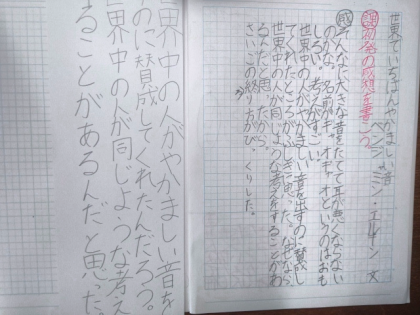 世界でいちばんやかましい音
ベンジャミン・エルキン 文
課 初発の感想を書こう。
感 そんなに大きな音をたてて耳が悪くならない
のかな。名前がギャオギャオというのはおも
しろい。考えがすごい。
世界中の人がやかましい音を出すのに賛成し
てくれたところがふしぎに思った。なぜなら
世界中の人が同じような考えをすることがあ
るんだと思ったから。
さいごの終わり方がびっくりした。
世界中の人がやかましい音を
のに賛成してくれたんだろう。
世界中の人が同じような考え
ることがあるんだと思った